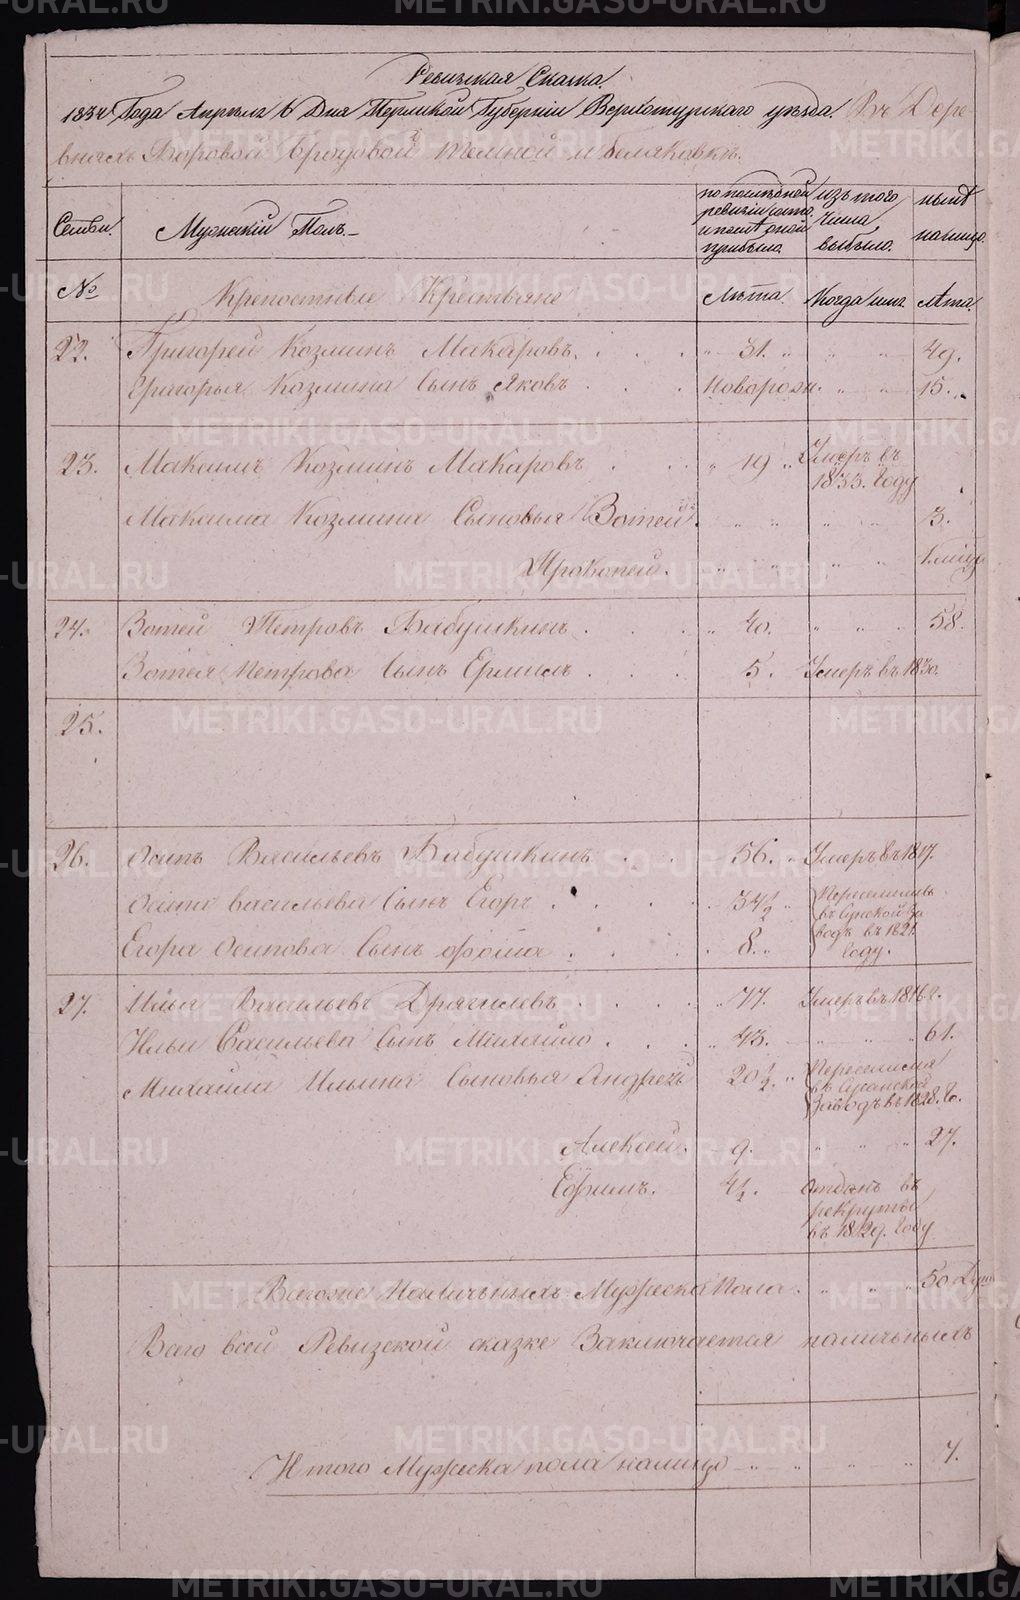 Ревизская Скаска.
1834 Года Апреля 6 Дня Пермской Губернии Верхотурскаго уезда. Въ Дере-
вняхъ Боровой Бродовой Темной и беляковкъ.
Семьи.
Мужеский Полъ
по последней ревизии состо. и после оной прибыло.
изъ того числа выбыло.
ныне на лицо.
№
Крепостные Крестьяне
Лета.
Когда им.
Лета.
22. Григорей Козминъ Макаровъ. 31. 49.
Григорья Козмина Сынъ Яковъ Новорож. 15.
23. Максимъ Козминъ Макаровъ 19 Умеръ въ 1833. Году
Максима Козмина Сыновья Вотей. 3.
Прокопей.
24. Вотей Петровъ Бабушкинъ 40. 58.
Вотея Петрова Сынъ Ермилъ 5. Умеръ въ 1830.
25.
26. Осипъ Васильевъ Бабушкинъ 56. Умеръ въ 1817.
Осипа Васильева Сынъ Егоръ 34½ Переселились въ завод въ 1821. Году.
Егора Осипова Сынъ фома 8.
27. Илья Васильевъ Драчилевъ 77. Умеръ въ
Ильи Васильева Сынъ Михайло 43. 61.
Михайла Ильина Сыновья Андрей 20½ Переселился въ Заводъ въ 1828. Г.
Алексей. 9. 27.
Ефимъ. 4½. отданъ въ рекруты въ 1829. Году
Наличныхъ Мужеска Пола. 50 Душ
Всего всей Ревизской сказке Заключается наличныхъ
Итого Мужеска пола налицо
METRIKI.GASO-URAL.RU